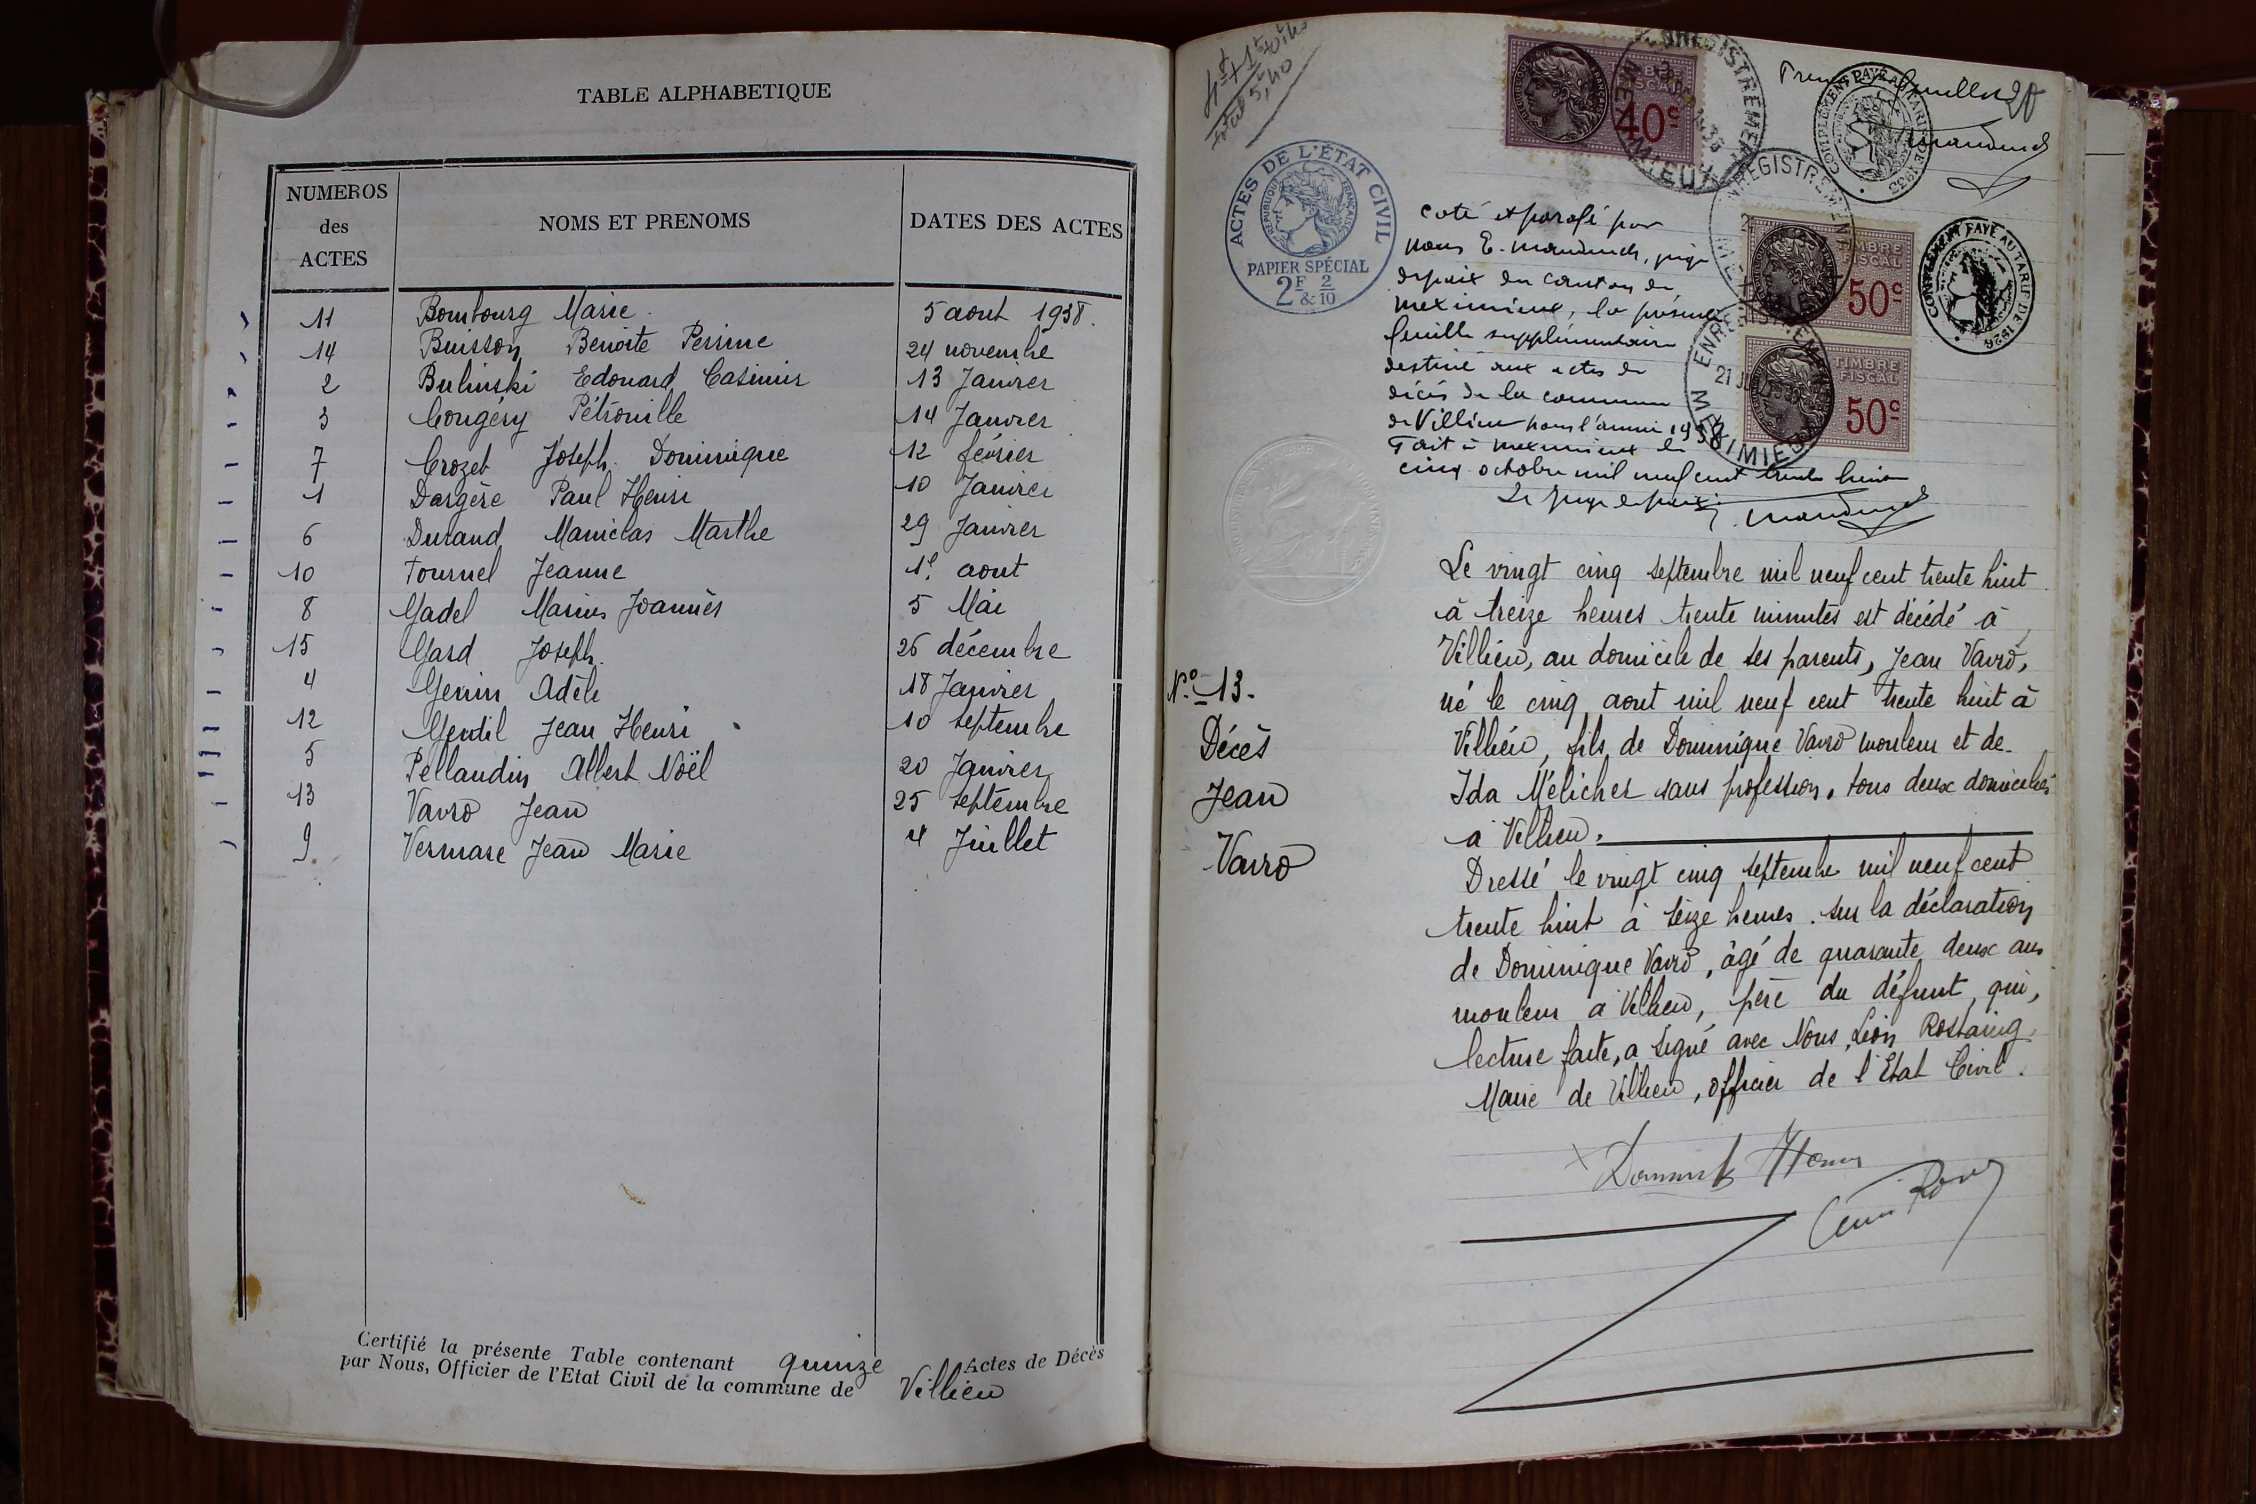 TABLE ALPHABETIQUE
NUMEROS
des
ACTES
NOMS ET PRENOMS
DATES DES ACTES
11 Bombourg Marie 5 aout 1938.
14 Buisson Benoite Perrine 24 novembre
2 Bulinski Edouard Casimir 13 Janvier
3 Cougéry Pétronille 14 Janvier
7 Crozet Joseph Dominique 12 février
1 Dargère Paul Henri 10 Janvier
6 Durand Maniclas Marthe 29 Janvier
10 Fournel Jeanne 1e. aout
8 Gadel Marius Joannès 5 Mai
15 Gard Joseph. 26 décembre
4 Genin Adèle 18 Janvier
12 Gentil Jean Henri 10 septembre
5 Pellaudin Albert Noël 20 Janvier
13 Vavro Jean 25 septembre
9. Vermare Jean Marie 4 Juillet
Certifié la présente Table contenant quinze Actes de Décès
par Nous, Officier de l'Etat Civil de la commune de Villieu
ACTES DE L'ÉTAT CIVIL
RÉPUBLIQUE FRANÇAISE
PAPIER SPÉCIAL
2F & 2/10
TIMBRE
FISCAL
40c
ENREGISTREMENT
COMPLÉMENT PAYÉ AU TARIF DE 1935
TIMBRE
FISCAL
50c
COMPLÉMENT PAYÉ AU TARIF DE 1926
ENREGISTREMENT
TIMBRE
FISCAL
50c
coté et parafé par
nous E. , juge
de paix du canton de
meximieux, la présente
feuille supplémentaire
destiné aux actes de
décès de la commune
de Villieu pour l'année 1938
Fait à meximieux le
cinq octobre mil neuf cent trente huit
Le juge de paix
No 13.
Décès
Jean
Vavro
Le vingt cinq septembre mil neuf cent trente huit
à treize heures trente minutes est décédé à
Villieu, au domicile de ses parents, Jean Vavro,
né le cinq aout mil neuf cent trente huit à
Villieu, fils de Dominique Vavro mouleur et de
Ida Mélicher sans profession, tous deux domiciliés
à Villieu.
Dressé le vingt cinq septembre mil neuf cent
trente huit à seize heures. sur la déclaration
de Dominique Vavro, âgé de quarante deux ans
mouleur à Villieu, père du défunt, qui,
lecture faite, a signé avec Nous, Léon Rostaing
Maire de Villieu, officier de l'Etat Civil.